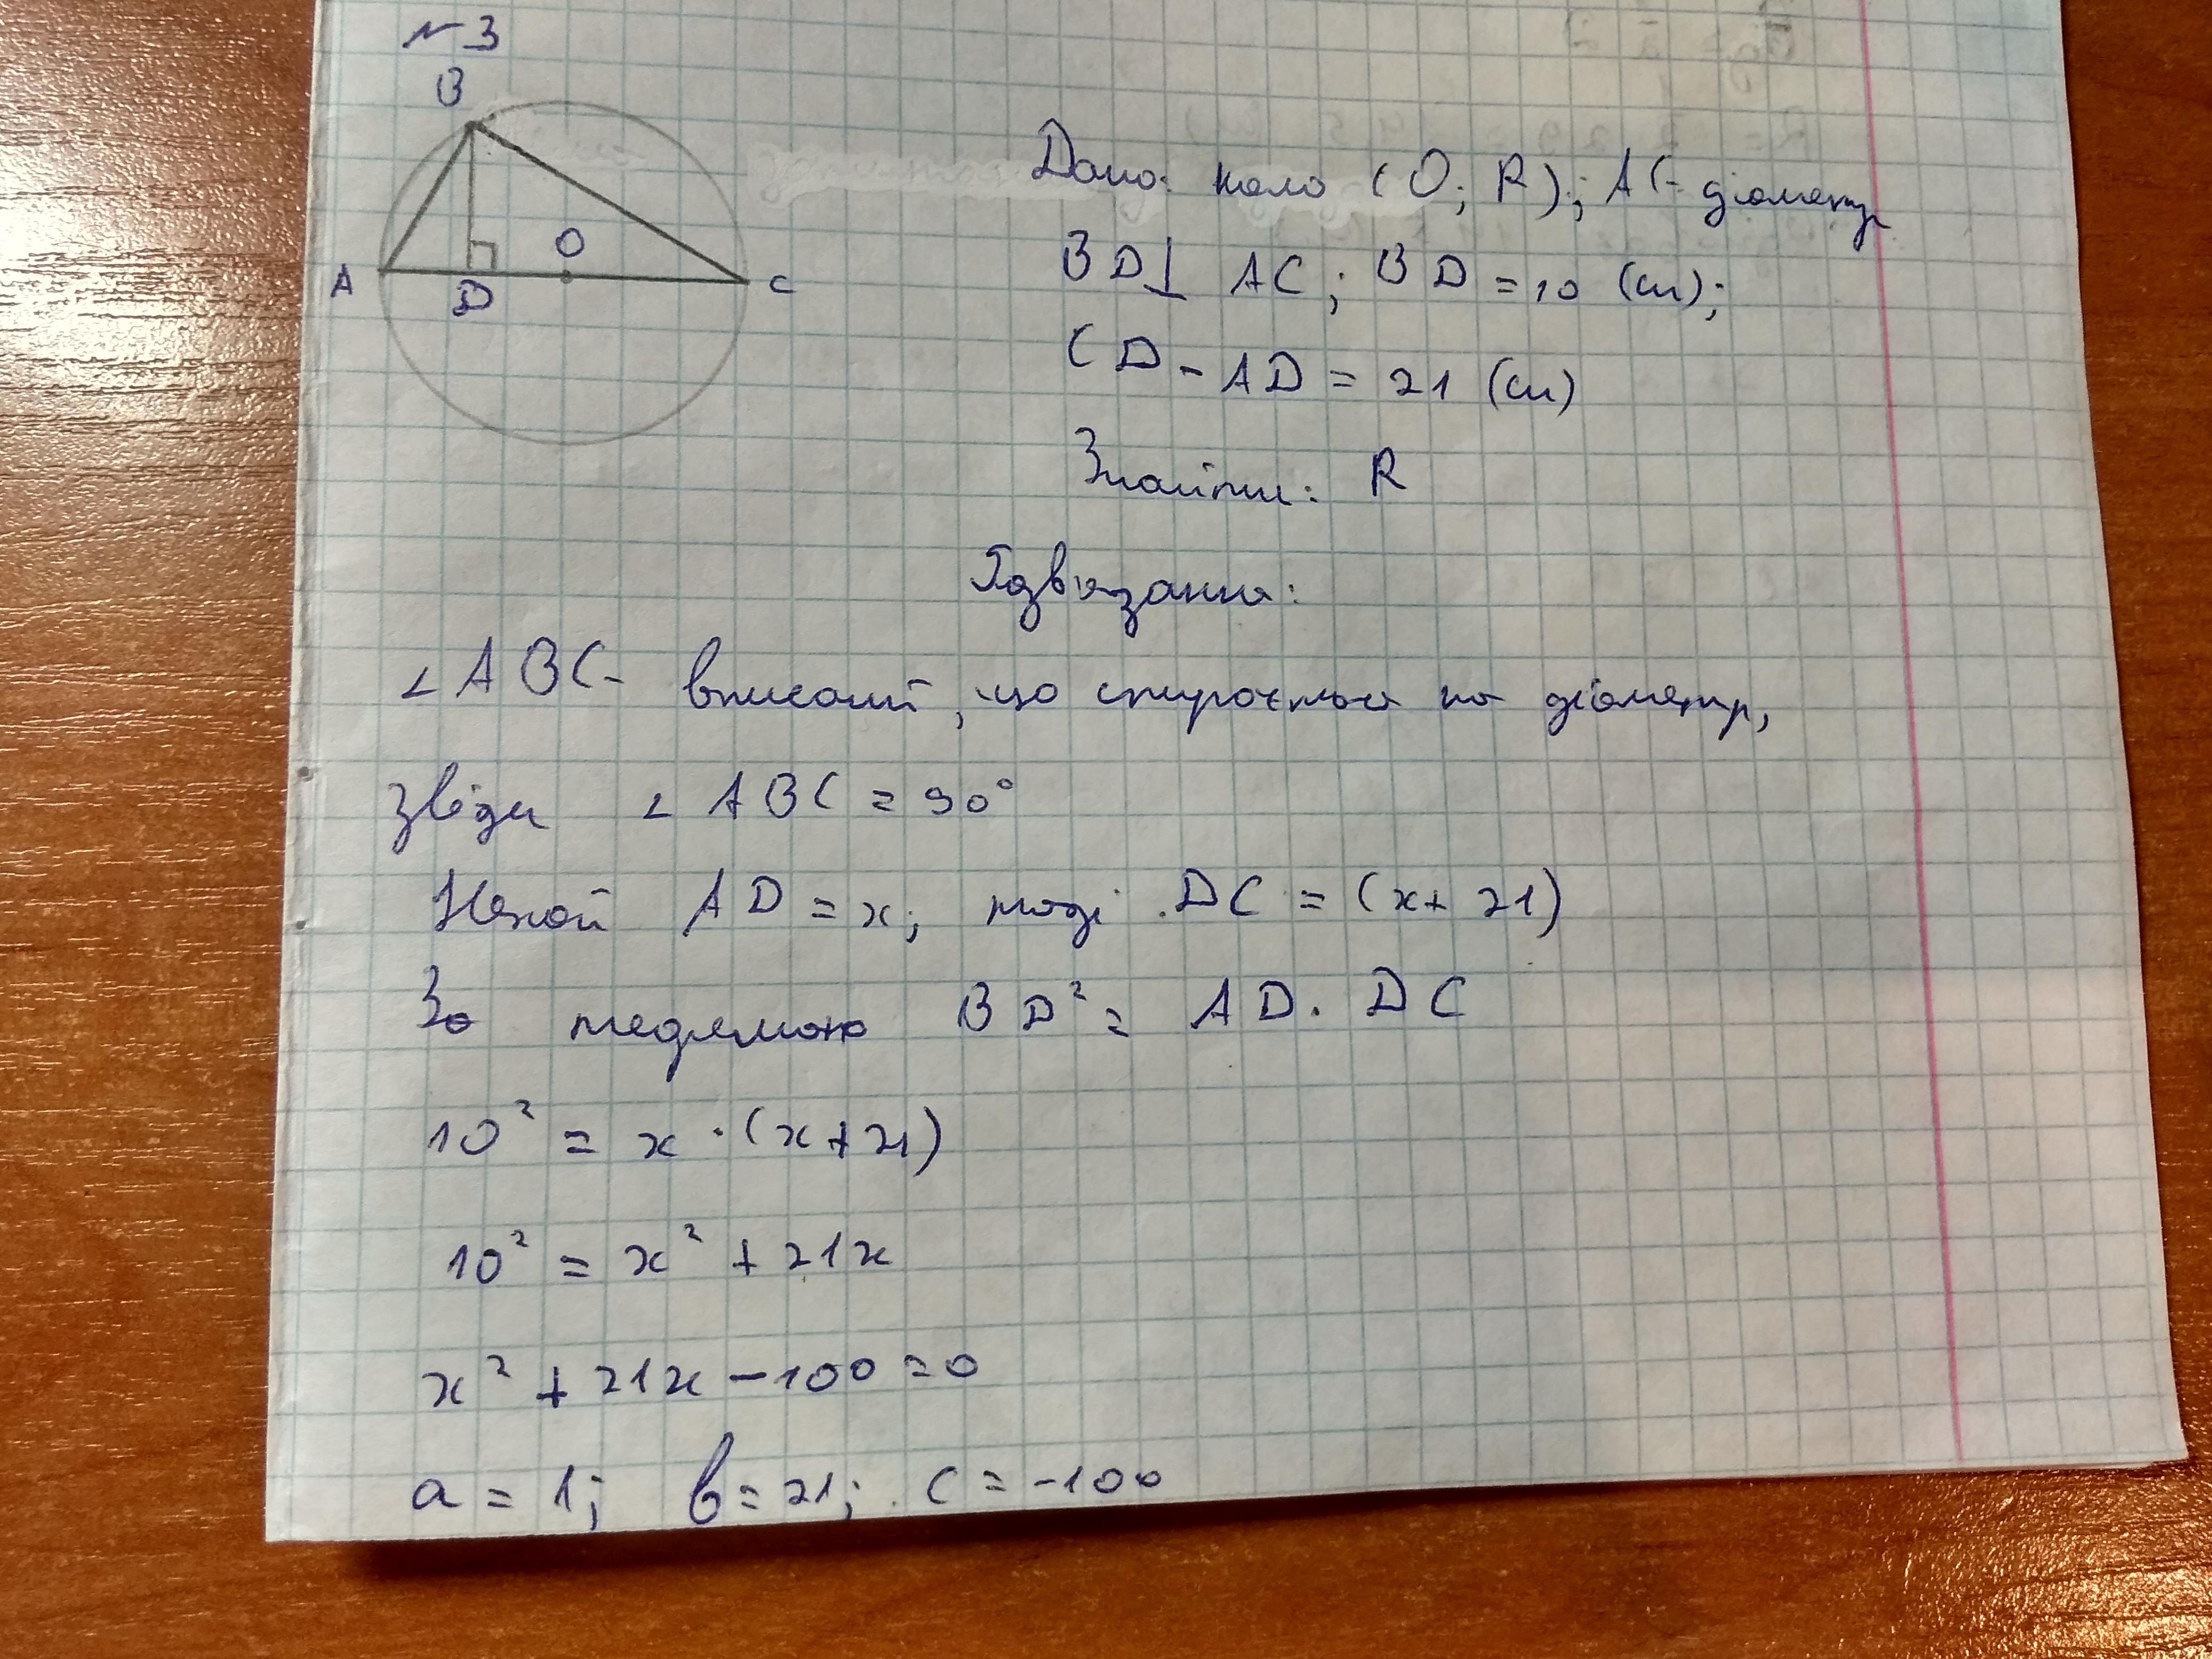 №3
B
A
D
O
C
Дано: коло (O; R); AC - діаметр
BD⊥ AC; BD = 10 (см);
CD - AD = 21 (см)
Знайти: R
Розв'язання:
∠ABC - вписаний, що спирається на діаметр,
звідси ∠ABC = 90°
Нехай AD = x; тоді DC = (x + 21)
За теоремою BD² = AD · DC
10² = x · (x + 21)
10² = x² + 21x
x² + 21x - 100 = 0
a = 1; b = 21; c = -100